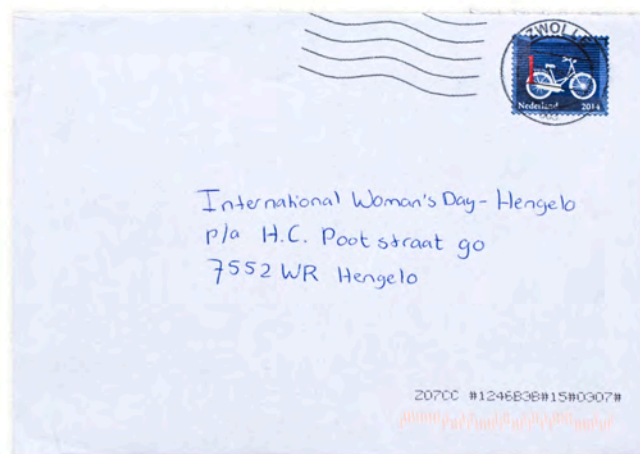 ZWOLLE
Nederland 2014
International Woman's Day - Hengelo
p/a H.C. Pootstraat 90
7552 WR Hengelo
207CC #124683B#15#0307#